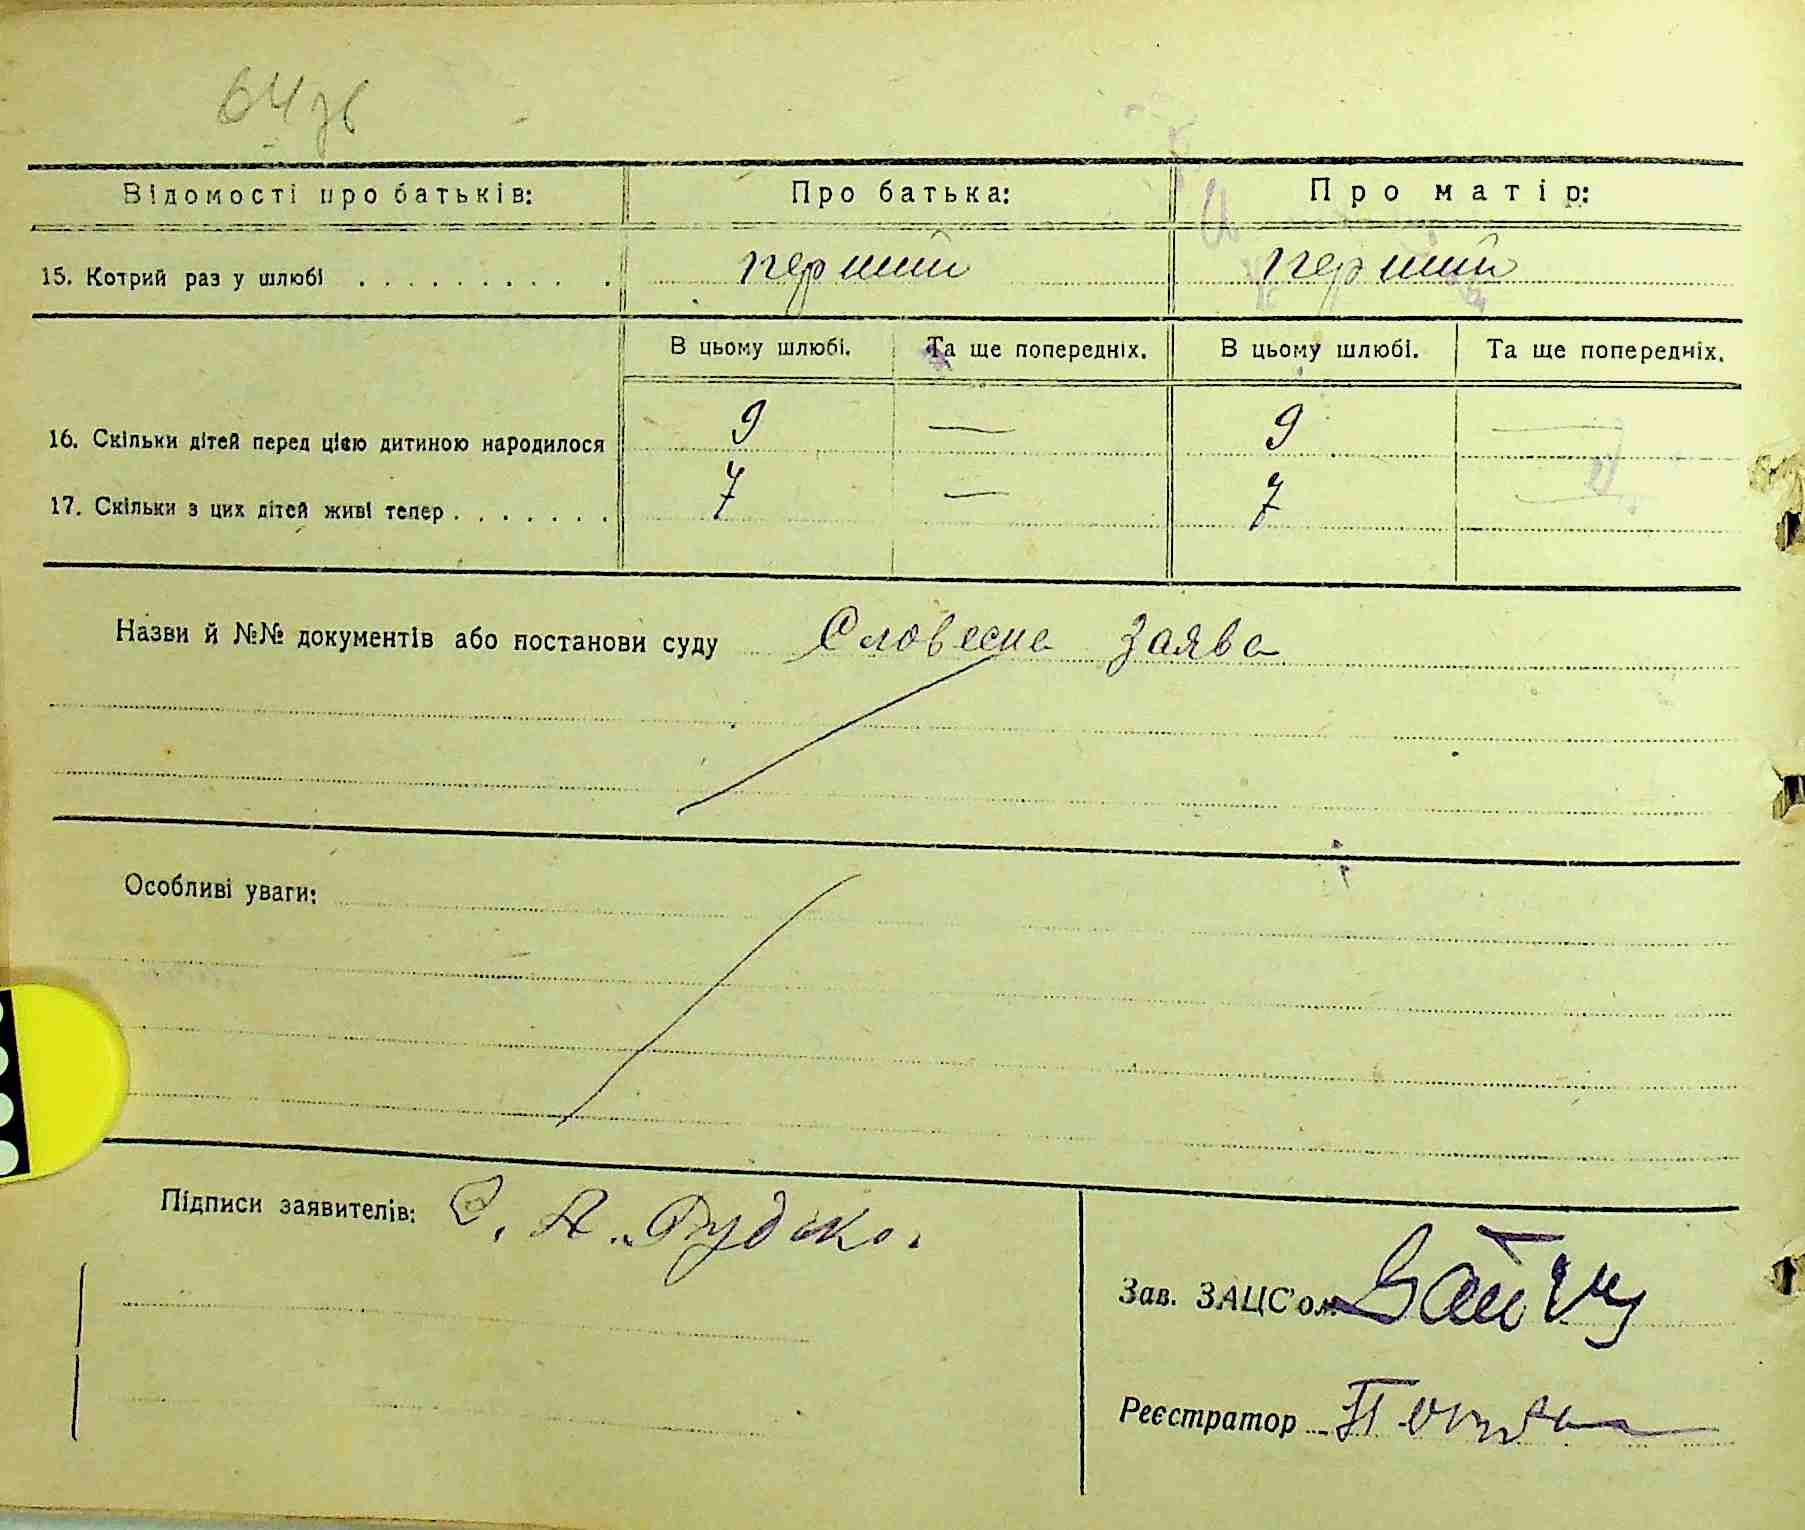 64зв
Відомості про батьків: Про батька: Про матір:
15. Котрий раз у шлюбі . . . . . . . . . . перший перший
В цьому шлюбі. Та ще попередніх. В цьому шлюбі. Та ще попередніх.
16. Скільки дітей перед цією дитиною народилося 9 — 9 —
17. Скільки з цих дітей живі тепер . . . . . . . 7 — 7 —
Назви й №№ документів або постанови суду Словесна заява
Особливі уваги:
Підписи заявителів: А. Рудько.
Зав. ЗАЦС'ом
Реєстратор